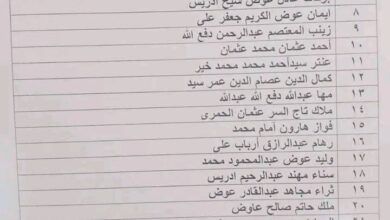 عوض شيخ ادريس
٨ ايمان عوض الكريم جعفر على
٩ زينب المعتصم عبدالرحمن دفع الله
١٠ أحمد عثمان محمد عثمان
١١ عنتر سيدأحمد محمد محمد خير
١٢ كمال الدين عصام الدين عمر سيد
١٣ مها عبدالله دفع الله عبدالله
١٤ ملاك تاج السر عثمان الحمرى
١٥ فواز هارون امام محمد
١٦ رهام عبدالرازق أرباب على
١٧ وليد عوض عبدالمحمود محمد
١٨ سناء مهند عبدالرحيم ادريس
١٩ ثراء مجاهد عبدالقادر عوض
٢٠ ملك حاتم صالح عاوض